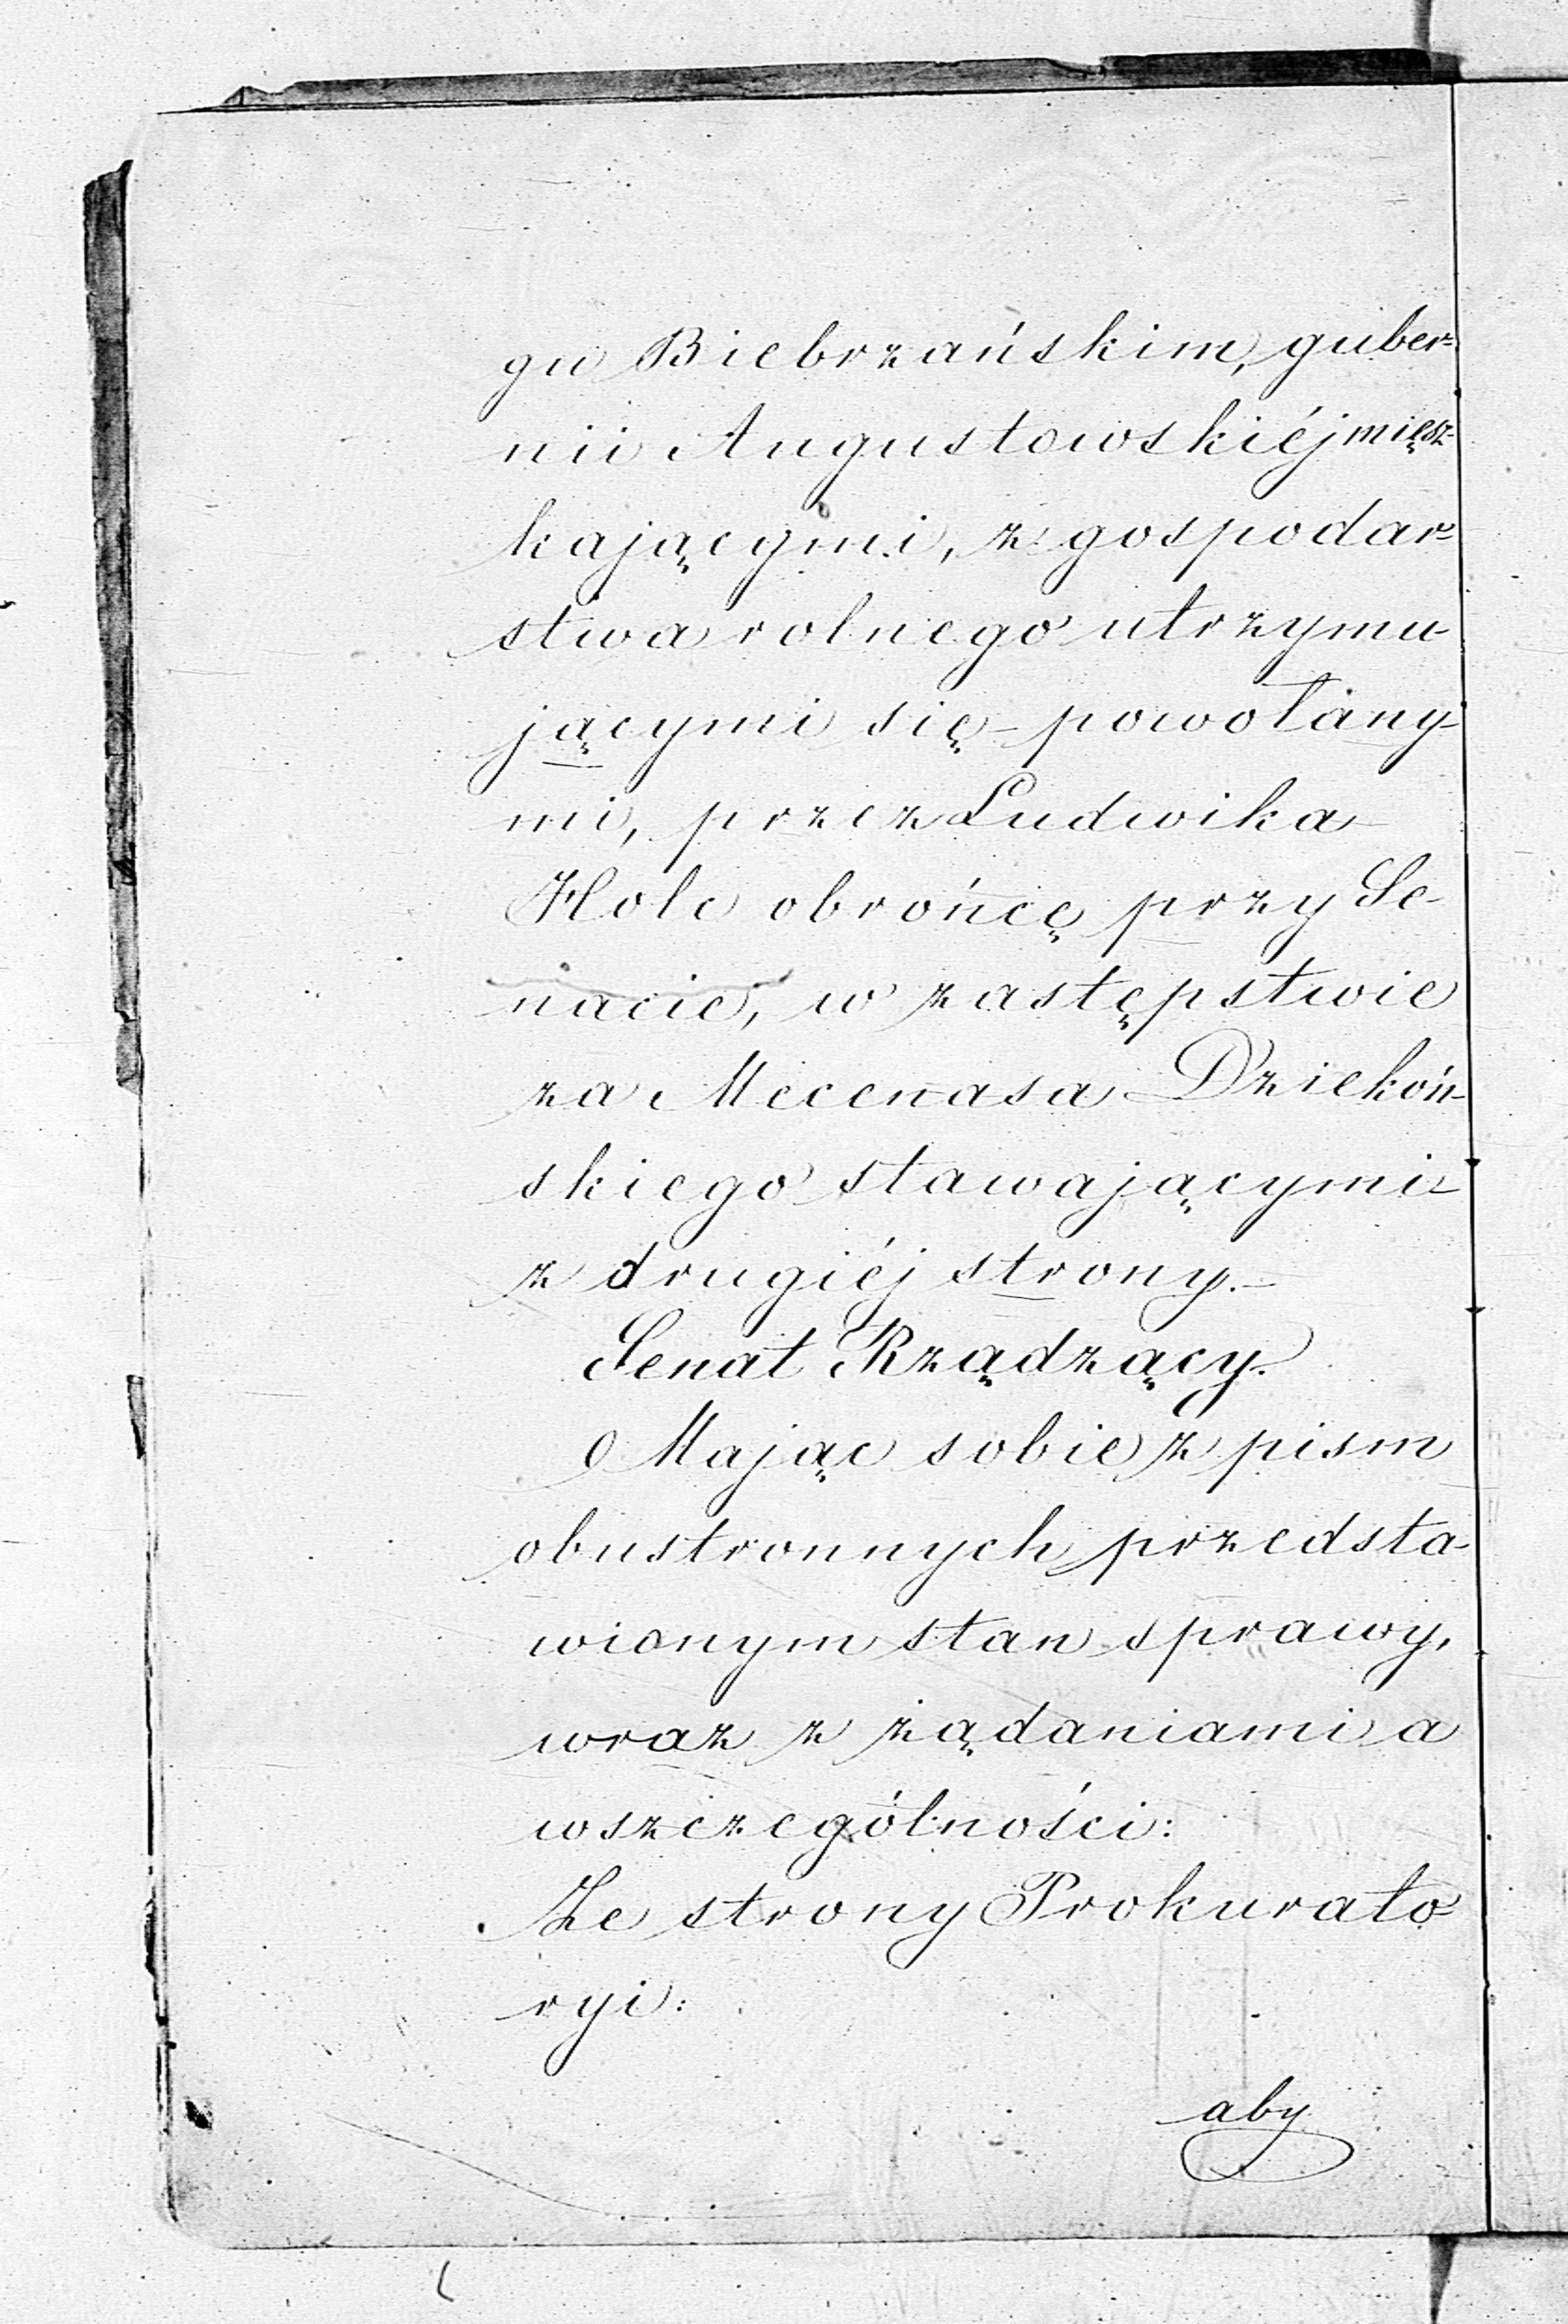 gu Biebrzańskim, guber=
nii Augustowskiéj mięsz-
kającymi, z gospodar=
stwa rolnego utrzymu-
jącymi się - powołany-
mi, przez Ludwika
Holc obrońcę przy Se-
nacie, w zastępstwie
za Mecenasa Dziekoń-
skiego stawającymi
z drugiéj strony.-
Senat Rządzący.
Mając sobie z pism
obustronnych przedsta-
wionym stan sprawy,
wraz z żądaniami a
wszczególności:
Ze strony Prokurato-
ryi:
aby